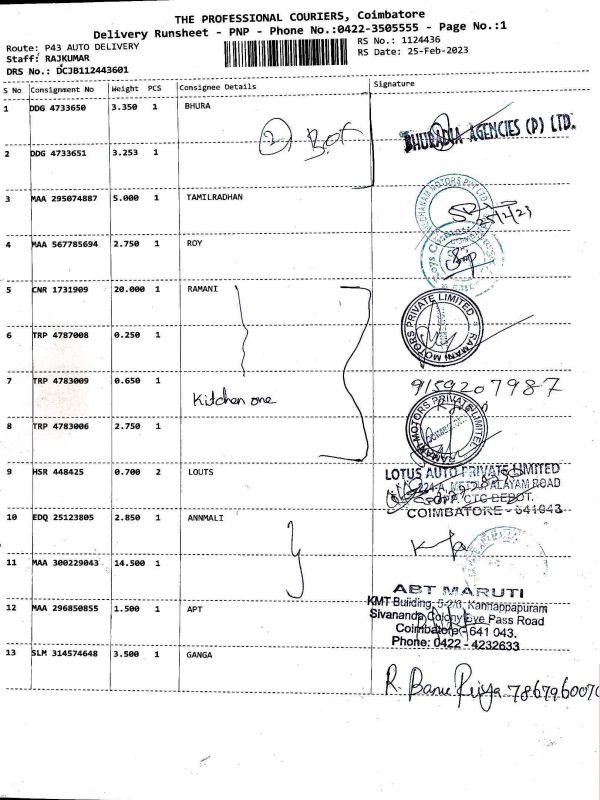 THE PROFESSIONAL COURIERS, Coimbatore
Delivery Runsheet - PNP - Phone No.:0422-3505555 - Page No.:1
Route: P43 AUTO DELIVERY
RS No.: 1124436
Staff: RAJKUMAR
RS Date: 25-Feb-2023
DRS No.: DCJB112443601
S No Consignment No Weight PCS Consignee Details Signature
1 DDG 4733650 3.350 1 BHURA
2 Box
BHURADIA AGENCIES (P) LTD.
2 DDG 4733651 3.253 1
3 MAA 295074887 5.000 1 TAMILRADHAN
25/2/23
4 MAA 567785694 2.750 1 ROY
5 CNR 1731909 20.000 1 RAMANI
RAMANI MOTORS PRIVATE LIMITED
6 TRP 4787008 0.250 1
7 TRP 4783009 0.650 1
Kitchen one
9159207987
8 TRP 4783006 2.750 1
RAMANI MOTORS PRIVATE LIMITED
9 HSR 448425 0.700 2 LOUTS
LOTUS AUTO PRIVATE LIMITED
224-A, METTUPALAYAM ROAD
OPP. CTC DEPOT.
COIMBATORE - 641043
10 EDQ 25123805 2.850 1 ANNMALI
11 MAA 300229043 14.500 1
ABT MARUTI
KMT Building, 5-2/6, Kannappapuram
12 MAA 296850855 1.500 1 APT
Sivananda Colony Bye Pass Road
Coimbatore - 641 043.
Phone: 0422 - 4232633
13 SLM 314574648 3.500 1 GANGA
R. Banu Priya